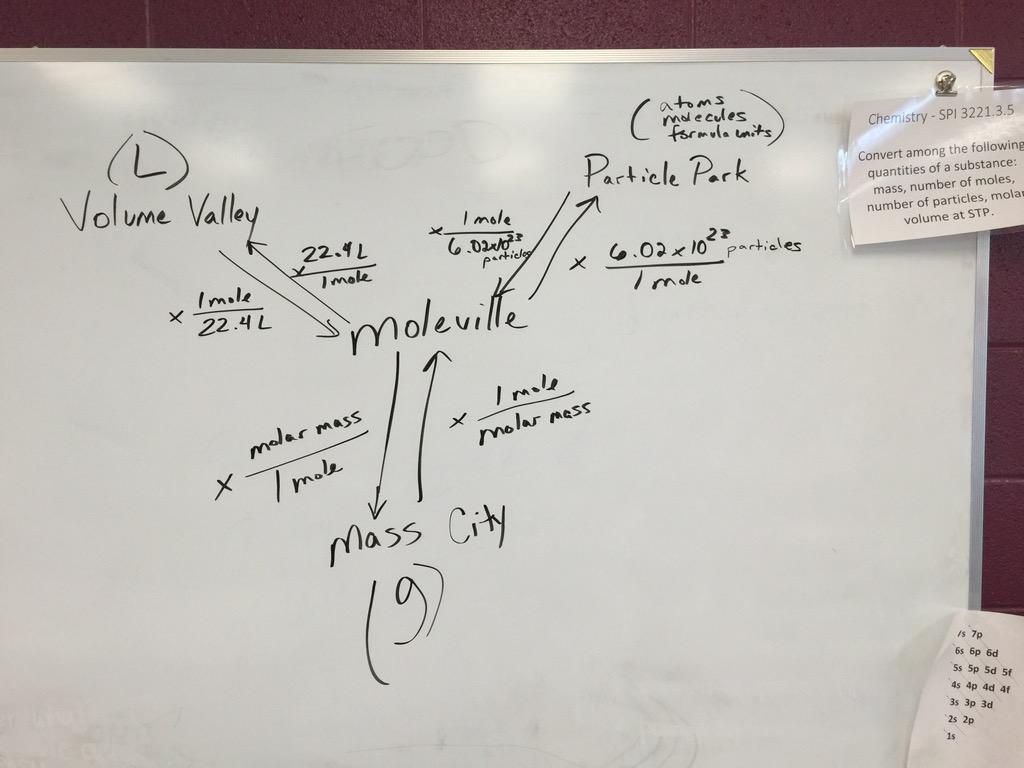 (atoms
molecules
formula units)
Particle Park
(L)
Volume Valley
x 22.4 L / 1 mole
x 1 mole / 22.4 L
x 1 mole / 6.02x10^23 particles
x 6.02x10^23 particles / 1 mole
moleville
x molar mass / 1 mole
x 1 mole / molar mass
Mass City
(g)
Chemistry - SPI 3221.3.5
Convert among the following
quantities of a substance:
mass, number of moles,
number of particles, molar
volume at STP.
7s 7p
6s 6p 6d
5s 5p 5d 5f
4s 4p 4d 4f
3s 3p 3d
2s 2p
1s